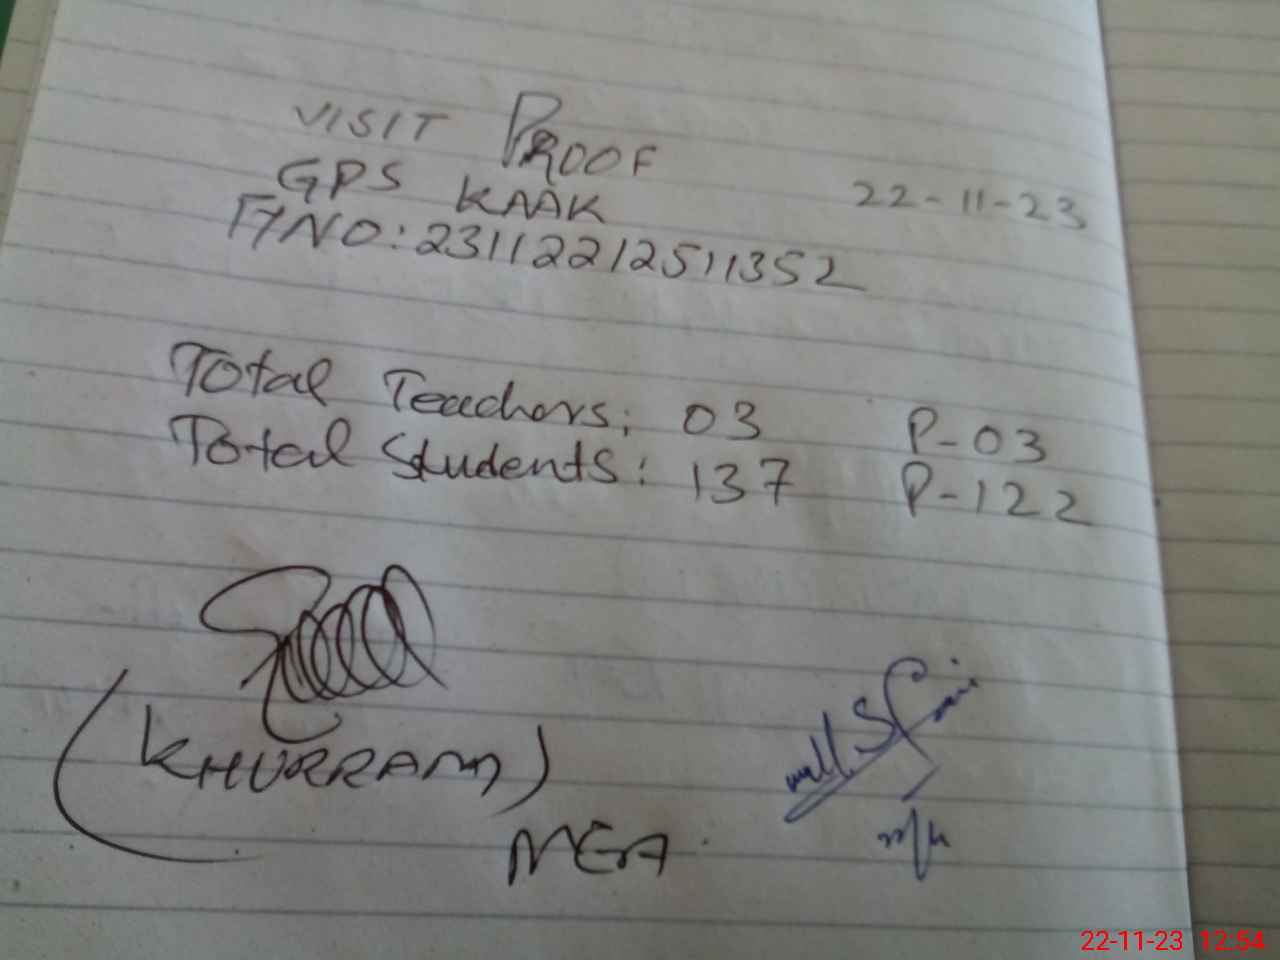 VISIT PROOF
GPS KAAK 22-11-23
F/NO: 23112212511352
Total Teachers: 03 P-03
Total Students: 137 P-122
(KHURRAM)
MEA
22-11-23 12:54